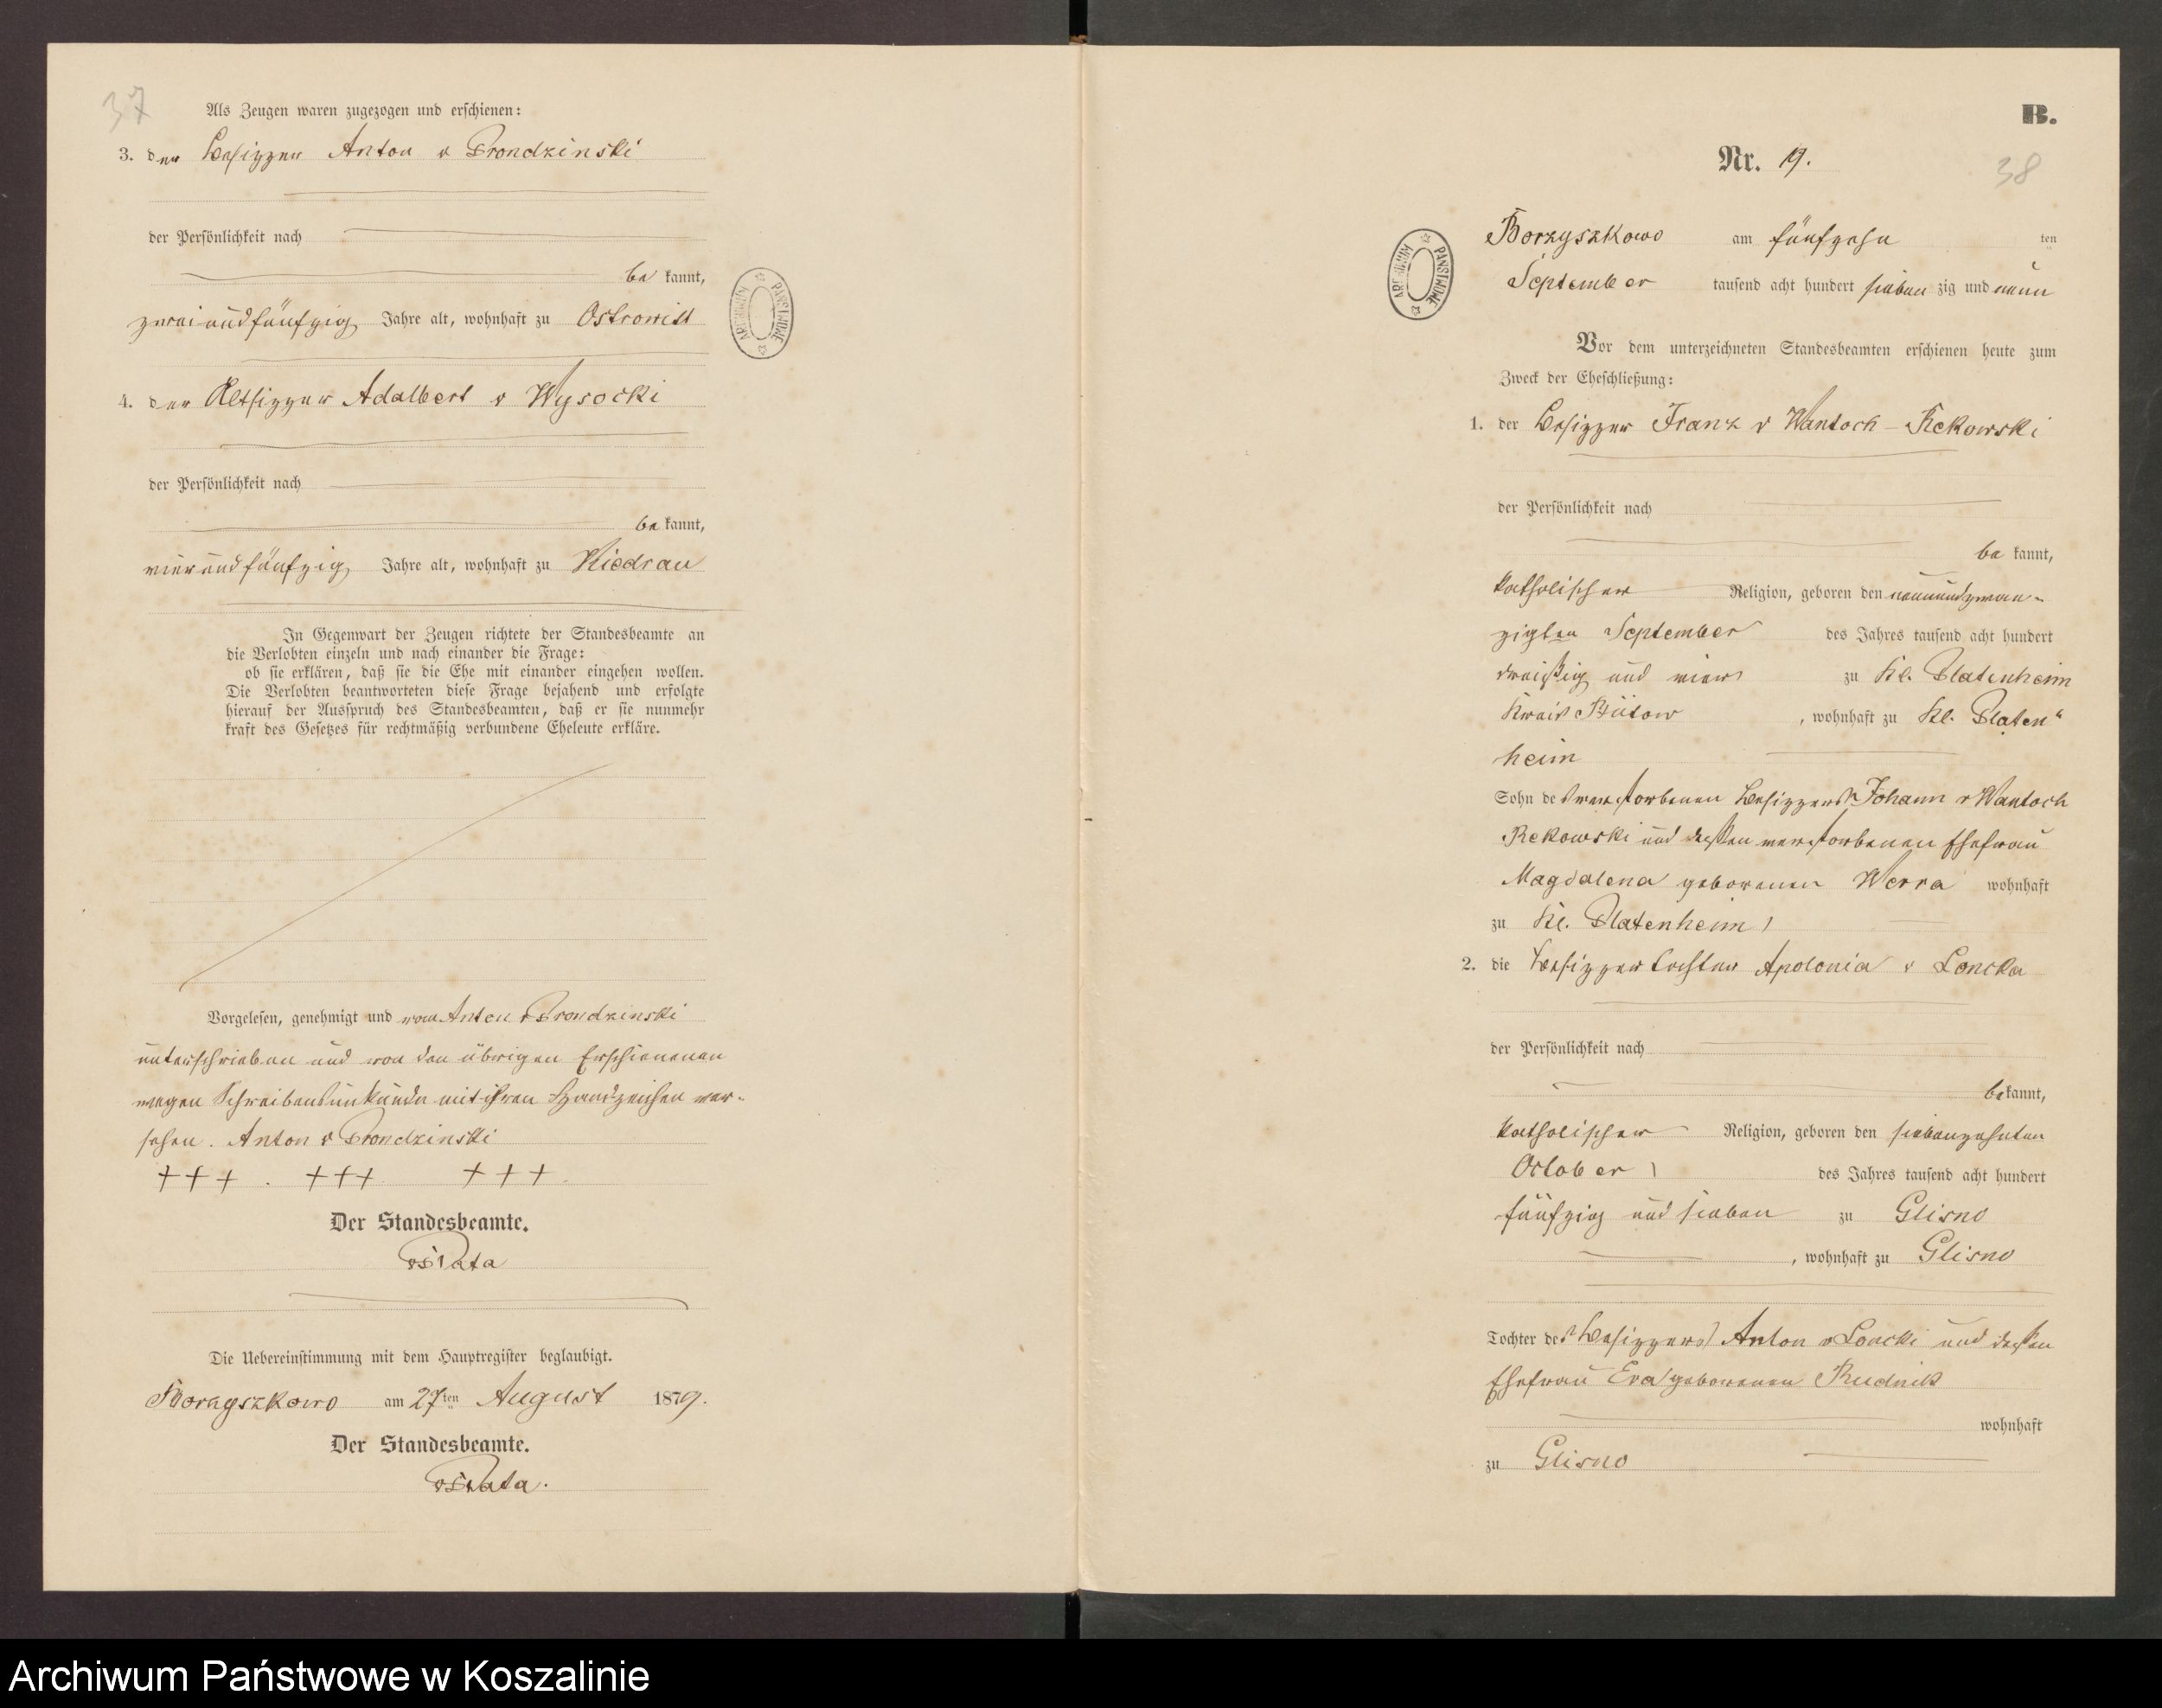 37
Als Zeugen waren zugezogen und erschienen:
3. der Besitzer Anton v Prondzinski
der Persönlichkeit nach
be kannt,
zweiundfünfzig Jahre alt, wohnhaft zu Ostrowitt
4. der Altsitzer Adalbert v Wysocki
der Persönlichkeit nach
be kannt,
vierundfünfzig Jahre alt, wohnhaft zu Kiedrau
In Gegenwart der Zeugen richtete der Standesbeamte an
die Verlobten einzeln und nach einander die Frage:
ob sie erklären, daß sie die Ehe mit einander eingehen wollen.
Die Verlobten beantworteten diese Frage bejahend und erfolgte
hierauf der Ausspruch des Standesbeamten, daß er sie nunmehr
kraft des Gesetzes für rechtmäßig verbundene Eheleute erkläre.
Vorgelesen, genehmigt und von Anton v Prondzinski
unterschrieben und von den übrigen Erschienenen
wegen Schreibensunkunde mit ihren Handzeichen ver-
sehen. Anton v Prondzinski
+++ . +++ +++.
Der Standesbeamte.
Die Uebereinstimmung mit dem Hauptregister beglaubigt.
Borzyszkowo am 27ten August 1879.
Der Standesbeamte.
ARCHIWUM PAŃSTWOWE
B.
Nr. 19.
38
Borzyszkowo am fünfzehn ten
September tausend acht hundert sieben zig und neun
Vor dem unterzeichneten Standesbeamten erschienen heute zum
Zweck der Eheschließung:
1. der Besitzer Franz v Wantoch-Rekowski
der Persönlichkeit nach
be kannt,
katholischer Religion, geboren den neunundzwan-
zigsten September des Jahres tausend acht hundert
dreißig und vier zu Kl. Platenheim
Kreis Bütow, wohnhaft zu Kl. Platen"
heim
Sohn des verstorbenen Besitzers Johann v Wantoch
Rekowski und dessen verstorbenen Ehefrau
Magdalena geborenen Werra wohnhaft
zu Kl. Platenheim
2. die Besitzertochter Apolonia v Loncka
der Persönlichkeit nach
bekannt,
katholischer Religion, geboren den siebenzehnten
October des Jahres tausend acht hundert
fünfzig und sieben zu Glisno
, wohnhaft zu Glisno
Tochter des Besitzers Anton v Loncki und dessen
Ehefrau Eva geborenen Rudnik
wohnhaft
zu Glisno
ARCHIWUM PAŃSTWOWE
Archiwum Państwowe w Koszalinie